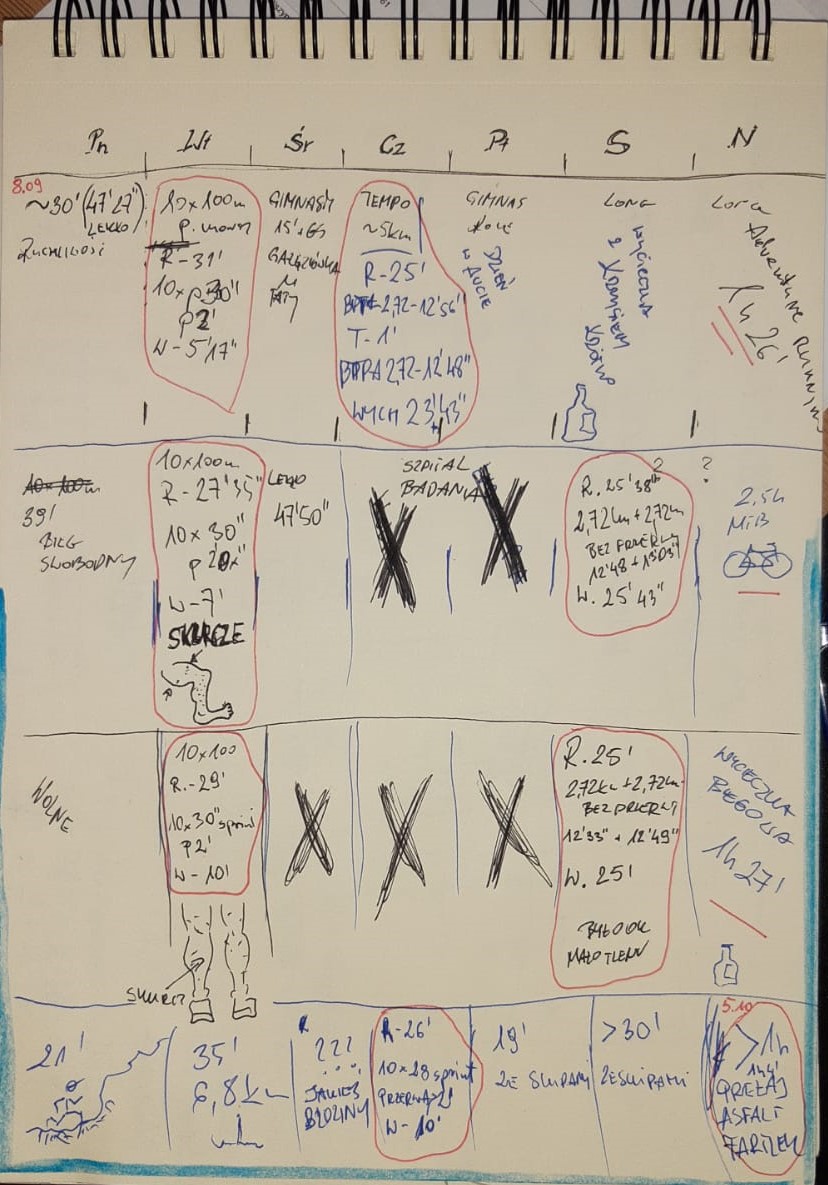 Pn Wt Śr Cz Pt S N
8.09
~30' (47'27")
LEKKO)
10x100m
R-31'
10xp30"
p2'
W-5'17"
15'+GS
M
TATY
TEMPO
~5km
R-25'
2,72-12'56"
T-1'
2,72-12'48"
WYCH 23'43"
GIMNAS
DZIEŃ
W AUCIE
LONG
WYCIECZKA
Z
KRÓTKO
Long
Adventure Running
1h 26'
10x100m
39'
BIEG
SWOBODNY
10x100m
R-27'35"
10x30"
W-7'
SKURCZE
LEKKO
47'50"
SZPITAL
BADANIA
?
R. 25'38"
2,72km+2,72km
BEZ PRZERWY
12'48+13'03"
W. 25'43"
?
2,5h
MTB
WOLNE
10x100
R.-29'
10x30" sprint
P2'
W-10'
SKURCZ
R. 25'
2,72km+2,72km
BEZ PRZERWY
12'33"+12'49"
W. 25'
MAŁO TLENU
WYCIECZKA
BIEGOWA
1h 27'
21'
35'
6,8km
???
JAKIEŚ
BZDZINY
R-26'
10x28 sprint
PRZERWA>2'
W-10'
19'
ZE SKIPAMI
>30'
ZE SKIPAMI
5.10
>1h
1h4'
PRZEŁAJ
ASFALT
FARTLEK